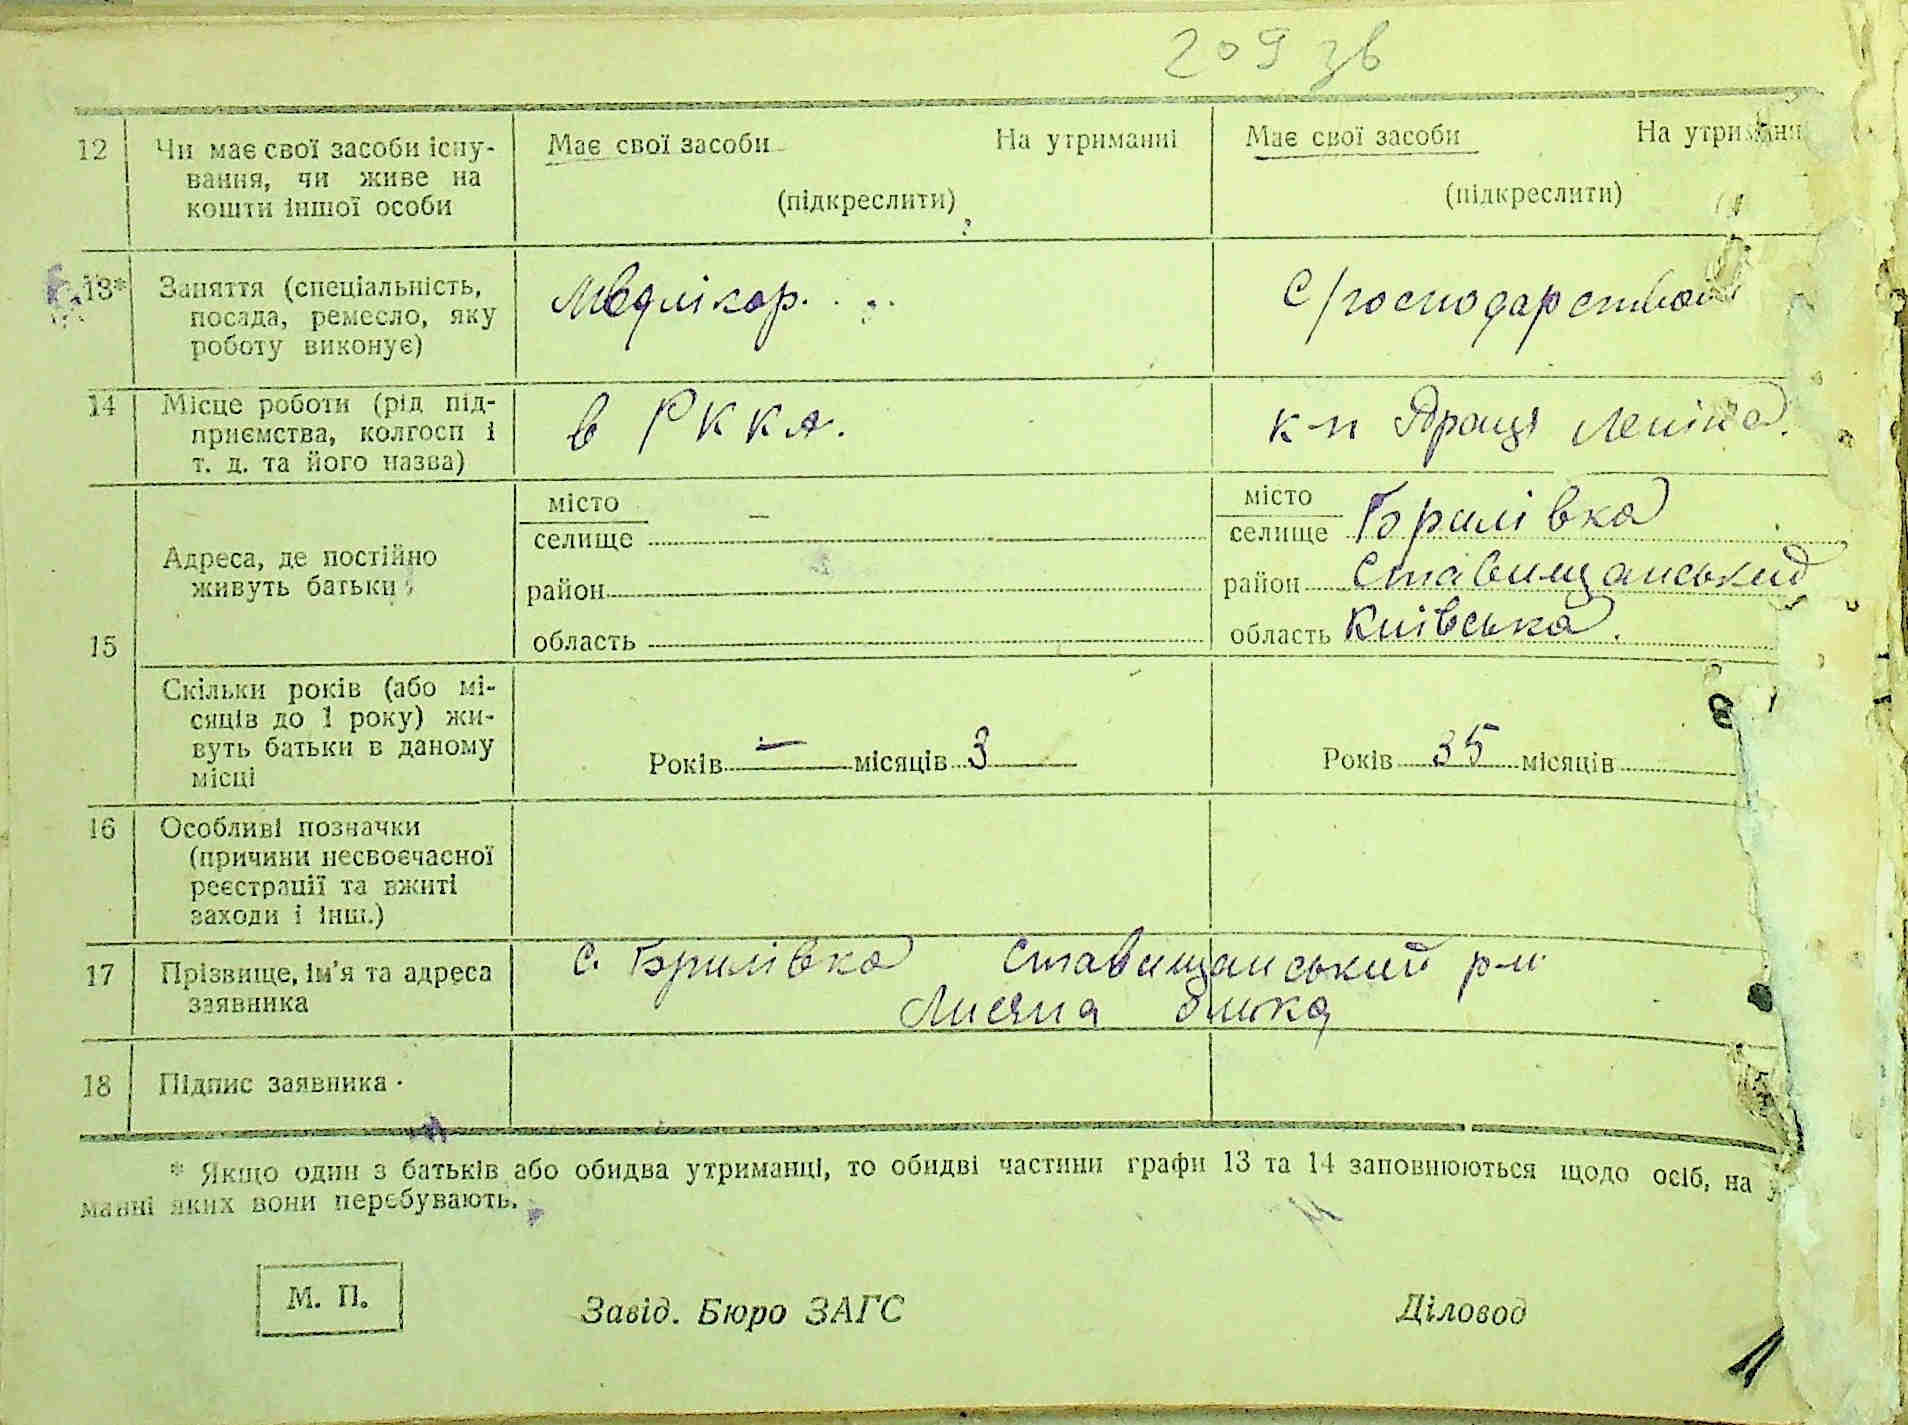 209 зв
12 Чи має свої засоби існу-
вання, чи живе на
кошти іншої особи
Має свої засоби На утриманні
(підкреслити)
Має свої засоби На утриманні
(підкреслити)
13* Заняття (спеціальність,
посада, ремесло, яку
роботу виконує)
Медлікар.
С/господарство
14 Місце роботи (рід під-
приємства, колгосп і
т. д. та його назва)
в РККА.
к-п Праця Леніна.
15 Адреса, де постійно
живуть батьки
місто
селище –
район
область
місто
селище Брилівка
район Ставищанський
область Київська.
Скільки років (або мі-
сяців до 1 року) жи-
вуть батьки в даному
місці
Років – місяців 3
Років 35 місяців
16 Особливі позначки
(причини несвоєчасної
реєстрації та вжиті
заходи і інш.)
17 Прізвище, ім'я та адреса
заявника
с. Брилівка Ставищанський р-н
18 Підпис заявника
* Якщо один з батьків або обидва утриманці, то обидві частини графи 13 та 14 заповнюються щодо осіб, на
манні яких вони перебувають.
М. П.
Завід. Бюро ЗАГС
Діловод